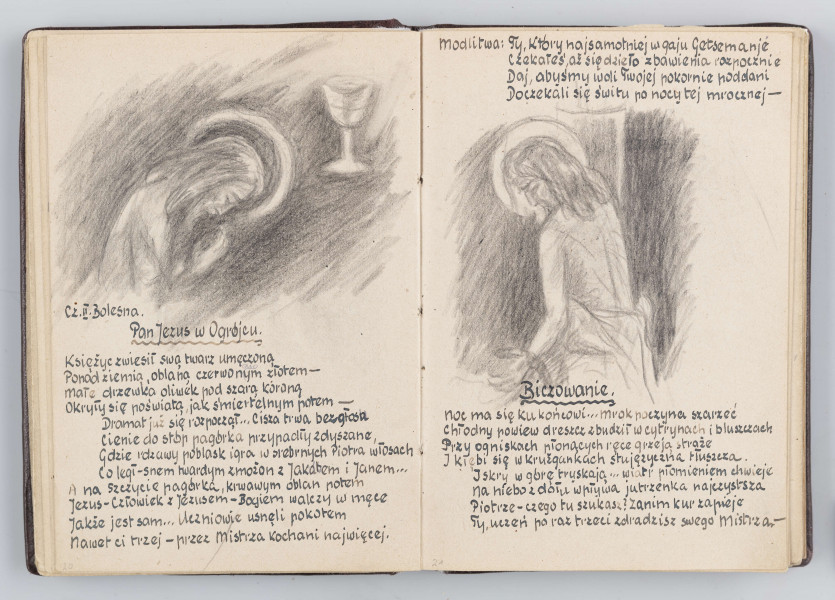 Cż.II.Bolesna.
Pan Jezus w Ogrójcu.
Księżyc zwiesił swą twarz umęczoną
Ponad ziemią, oblaną czerwonym złotem—
małe drzewka oliwek pod szarą koroną
Okryły się poświatą, jak śmiertelnym potem —
Dramat już się rozpoczął... Cisza trwa bezgłosa
Cienie do stóp pagórka przypadły zdyszane,
Gdzie rdzawy poblask igra w srebrnych Piotra włosach
Co legł-snem twardym zmożon z Jakóbem i Janem...
A na szczycie pagórka, krwawym oblan potem
Jezus-Człowiek z Jezusem-Bogiem walczy w męce
Jakże jest sam... Uczniowie usnęli pokotem
Nawet ci trzej – przez Mistrza kochani najwięcej.
Modlitwa: Ty, który najsamotniej w gaju Getsemanje
Czekałeś, aż się dzieło zbawienia rozpocznie
Daj, abyśmy woli Twojej pokornie poddani
Doczekali się świtu po nocy tej mrocznej—
Biczowanie.
Noc ma się ku końcowi... mrok poczyna szarzeć
Chłodny powiew dreszcz zbudził w cytrynach i bluszczach
Przy ogniskach płonących ręce grzeją straże
I kłębi się w krużgankach stujęzyczna tłuszcza.
Iskry w górę tryskają... wiatr płomieniem chwieje
Na niebo z dołu wpływa jutrzenka najczystsza
Piotrze-czego tu szukasz? zanim kur zapieje
Ty, uczeń po raz trzeci zdradzisz swego Mistrza,—